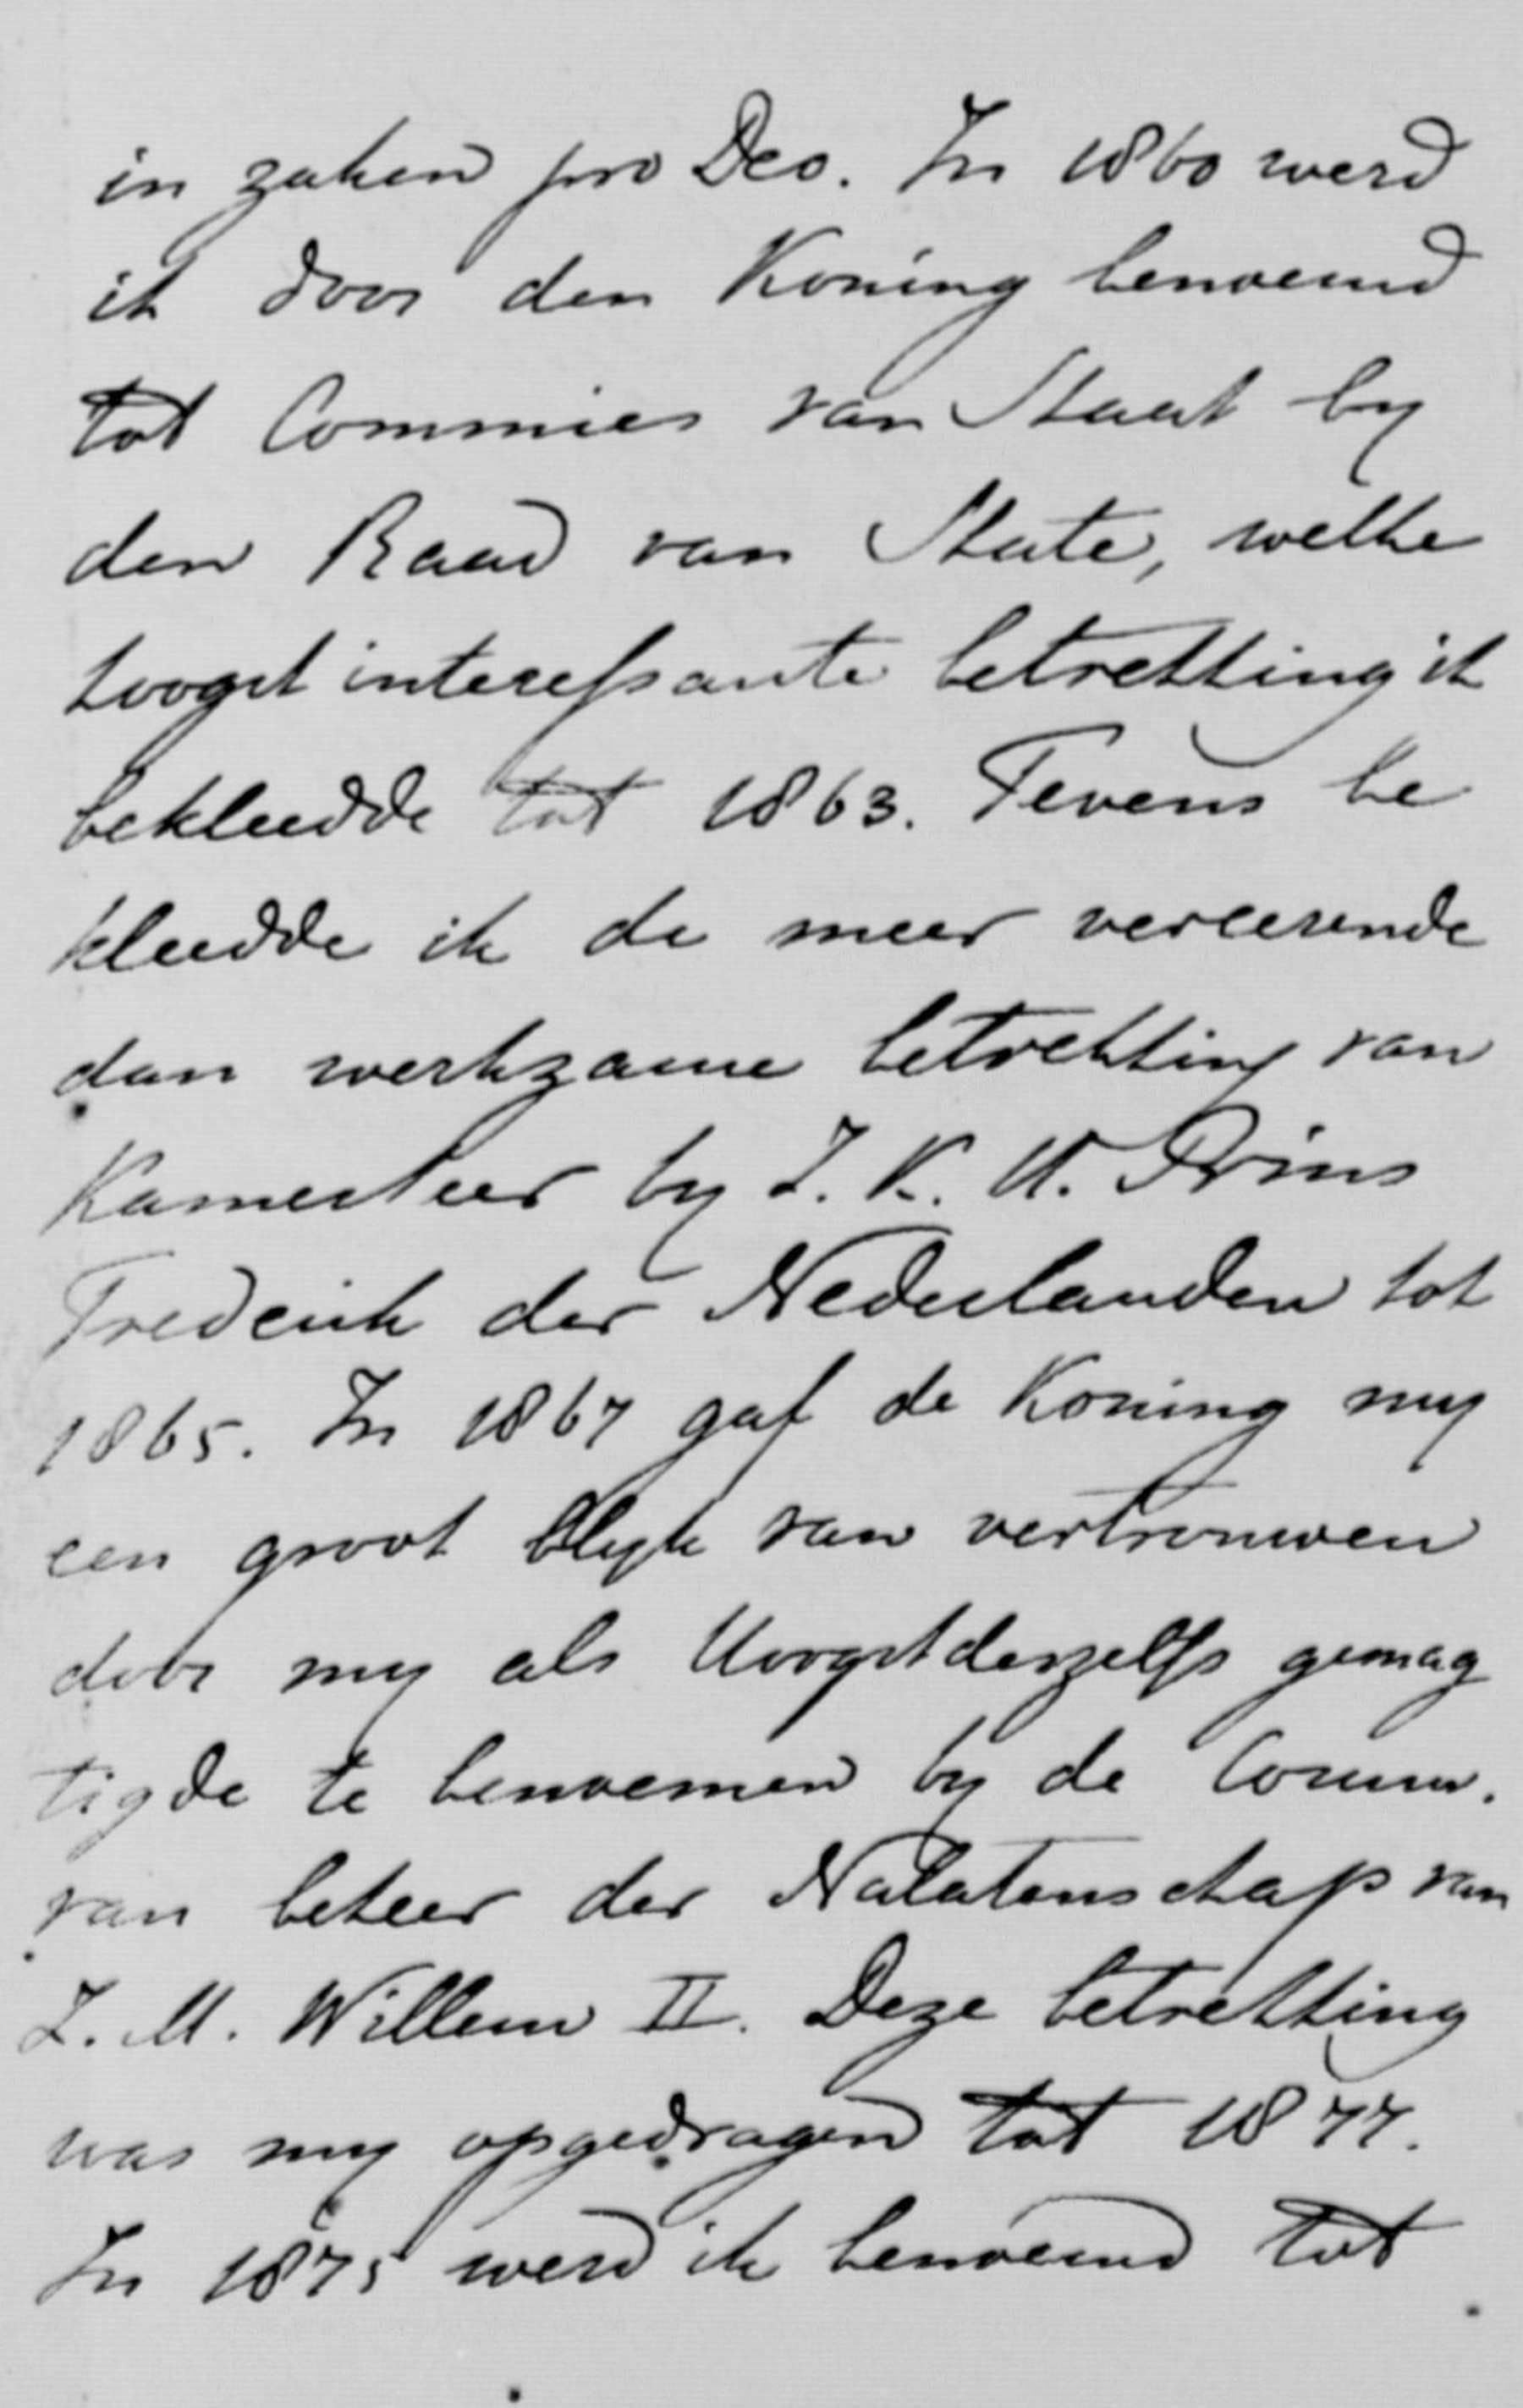 in zaken pro Deo. In 1860 werd
ik door den Koning benoemd
tot Commies van Staat by
den Raad van State, welke
hoogst interessante betrekking ik
bekleedde tot 1863. Tevens be
kleedde ik de meer vereerende
dan werkzame betrekking van
Kamerheer by Z. K. H. Prins
Frederik der Nederlanden tot
1865. In 1867 gaf de Koning my
een groot blyk van vertrouwen
door my als Hoogstdeszelfs gemag
tigde te benoemen by de Comm.
van beheer der Nalatenschap van
Z. M. Willem II. Deze betrekking
was my opgedragen tot 1877.
In 1875 werd ik benoemd tot